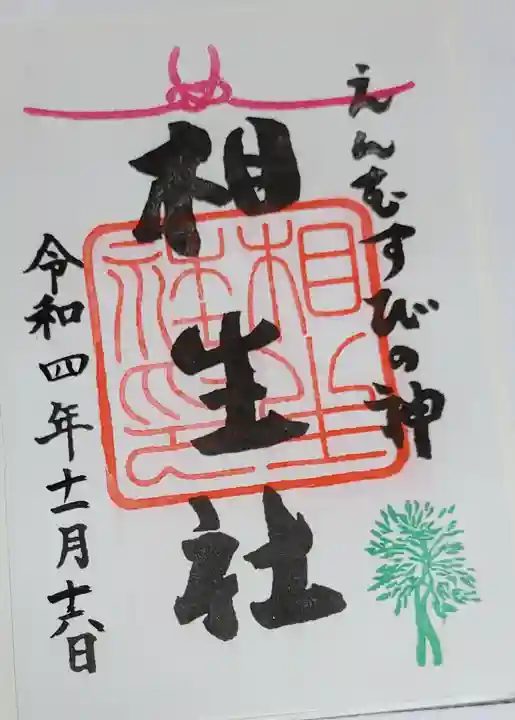 えんむすびの神
相生社
相生社之印
令和四年十一月十六日